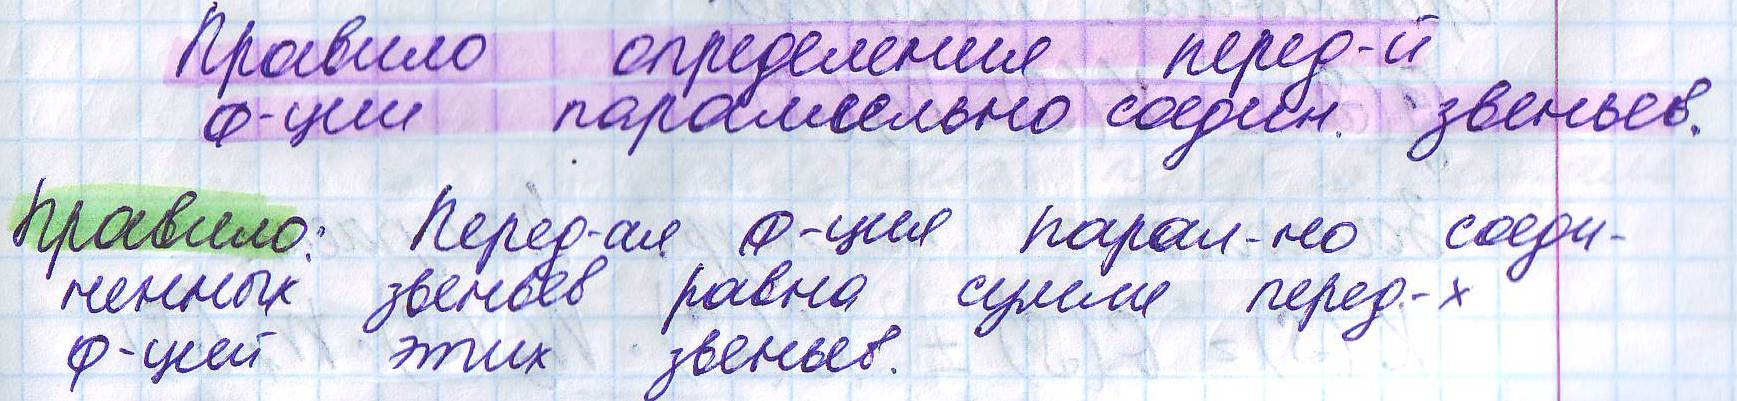 Правило определения перед-й
ф-ции параллельно соедин. звеньев.
Правило: Перед-ая ф-ция парал-но соеди-
ненных звеньев равна сумме перед-х
ф-ций этих звеньев.